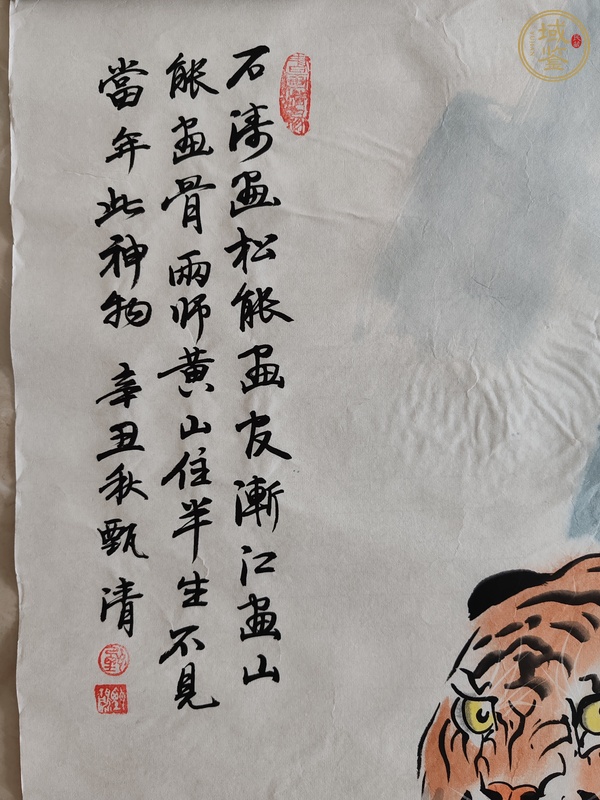 石濤畫松能畫皮漸江畫山
能畫骨兩師黃山住半生不見
當年此神物 辛丑秋甄清
域鉴